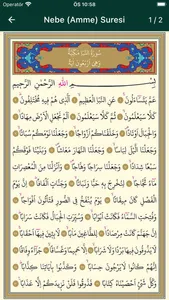 Operatör ÖS 10:58
Nebe (Amme) Suresi 1 / 2
سُورَةُ النَّبَإِ مَكِّيَّةٌ
وَهِيَ أَرْبَعُونَ آيَةً
بِسْمِ اللّٰهِ الرَّحْمٰنِ الرَّحِيمِ
عَمَّ يَتَسَاءَلُونَ عَنِ النَّبَإِ الْعَظِيمِ الَّذِي هُمْ فِيهِ مُخْتَلِفُونَ
كَلَّا سَيَعْلَمُونَ ثُمَّ كَلَّا سَيَعْلَمُونَ أَلَمْ نَجْعَلِ الْأَرْضَ مِهَادًا
وَالْجِبَالَ أَوْتَادًا وَخَلَقْنَاكُمْ أَزْوَاجًا وَجَعَلْنَا نَوْمَكُمْ سُبَاتًا
وَجَعَلْنَا اللَّيْلَ لِبَاسًا وَجَعَلْنَا النَّهَارَ مَعَاشًا وَبَنَيْنَا فَوْقَكُمْ
سَبْعًا شِدَادًا وَجَعَلْنَا سِرَاجًا وَهَّاجًا وَأَنْزَلْنَا مِنَ الْمُعْصِرَاتِ
مَاءً ثَجَّاجًا لِنُخْرِجَ بِهِ حَبًّا وَنَبَاتًا وَجَنَّاتٍ أَلْفَافًا إِنَّ يَوْمَ
الْفَصْلِ كَانَ مِيقَاتًا يَوْمَ يُنْفَخُ فِي الصُّورِ فَتَأْتُونَ أَفْوَاجًا
وَفُتِحَتِ السَّمَاءُ فَكَانَتْ أَبْوَابًا وَسُيِّرَتِ الْجِبَالُ فَكَانَتْ سَرَابًا
إِنَّ جَهَنَّمَ كَانَتْ مِرْصَادًا لِلطَّاغِينَ مَآبًا لَابِثِينَ فِيهَا أَحْقَابًا
لَا يَذُوقُونَ فِيهَا بَرْدًا وَلَا شَرَابًا إِلَّا حَمِيمًا وَغَسَّاقًا جَزَاءً وِفَاقًا
إِنَّهُمْ كَانُوا لَا يَرْجُونَ حِسَابًا وَكَذَّبُوا بِآيَاتِنَا كِذَّابًا
وَكُلَّ شَيْءٍ أَحْصَيْنَاهُ كِتَابًا فَذُوقُوا فَلَنْ نَزِيدَكُمْ إِلَّا عَذَابًا